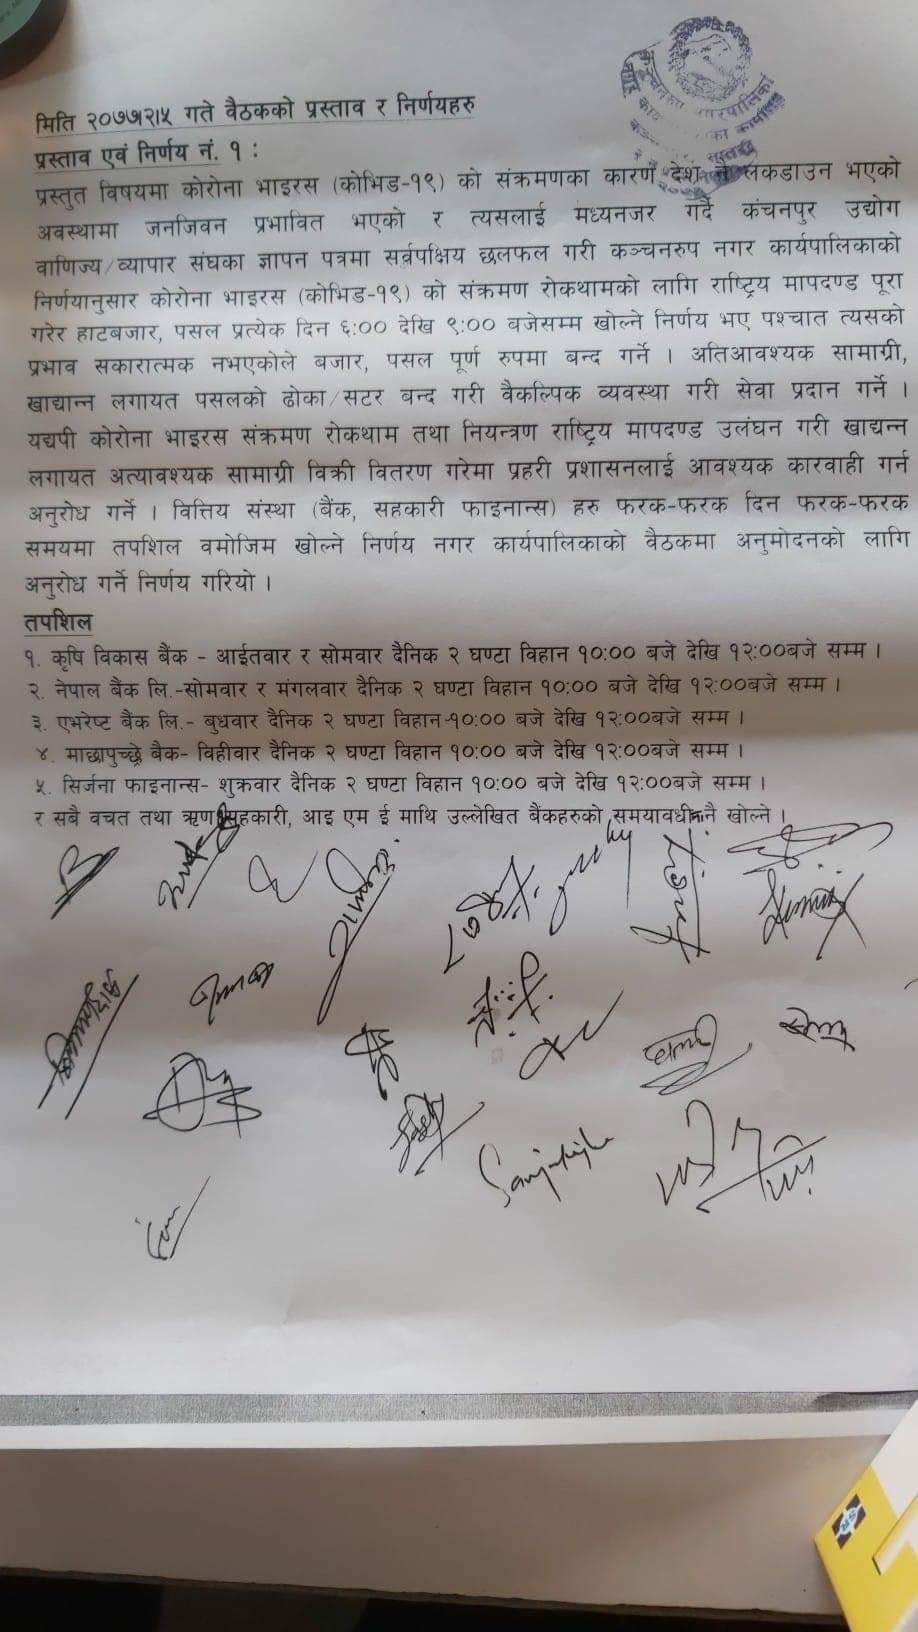 मिति २०७७।२।५ गते वैठकको प्रस्ताव र निर्णयहरु
प्रस्ताव एवं निर्णय नं. १ :
प्रस्तुत विषयमा कोरोना भाइरस (कोभिड-१९) को संक्रमणका कारण देश नै लकडाउन भएको
अवस्थामा जनजिवन प्रभावित भएको र त्यसलाई मध्यनजर गर्दै कंचनपुर उद्योग
वाणिज्य/व्यापार संघका ज्ञापन पत्रमा सर्वपक्षिय छलफल गरी कञ्चनरुप नगर कार्यपालिकाको
निर्णयानुसार कोरोना भाइरस (कोभिड-१९) को संक्रमण रोकथामको लागि राष्ट्रिय मापदण्ड पूरा
गरेर हाटबजार, पसल प्रत्येक दिन ६:०० देखि ९:०० बजेसम्म खोल्ने निर्णय भए पश्चात त्यसको
प्रभाव सकारात्मक नभएकोले बजार, पसल पूर्ण रुपमा बन्द गर्ने । अतिआवश्यक सामाग्री,
खाद्यान्न लगायत पसलको ढोका/सटर बन्द गरी वैकल्पिक व्यवस्था गरी सेवा प्रदान गर्ने ।
यद्यपी कोरोना भाइरस संक्रमण रोकथाम तथा नियन्त्रण राष्ट्रिय मापदण्ड उलंघन गरी खाद्यन्न
लगायत अत्यावश्यक सामाग्री विक्री वितरण गरेमा प्रहरी प्रशासनलाई आवश्यक कारवाही गर्न
अनुरोध गर्ने । वित्तिय संस्था (बैंक, सहकारी फाइनान्स) हरु फरक-फरक दिन फरक-फरक
समयमा तपशिल वमोजिम खोल्ने निर्णय नगर कार्यपालिकाको वैठकमा अनुमोदनको लागि
अनुरोध गर्ने निर्णय गरियो ।
तपशिल
१. कृषि विकास बैंक - आईतवार र सोमवार दैनिक २ घण्टा विहान १०:०० बजे देखि १२:००बजे सम्म ।
२. नेपाल बैंक लि.-सोमवार र मंगलवार दैनिक २ घण्टा विहान १०:०० बजे देखि १२:००बजे सम्म ।
३. एभरेष्ट बैंक लि.- बुधवार दैनिक २ घण्टा विहान १०:०० बजे देखि १२:००बजे सम्म ।
४. माछापुच्छ्रे बैक- विहीवार दैनिक २ घण्टा विहान १०:०० बजे देखि १२:००बजे सम्म ।
५. सिर्जना फाइनान्स- शुक्रवार दैनिक २ घण्टा विहान १०:०० बजे देखि १२:००बजे सम्म ।
र सबै वचत तथा ऋण सहकारी, आइ एम ई माथि उल्लेखित बैंकहरुको समयावधीनै खोल्ने ।
SR